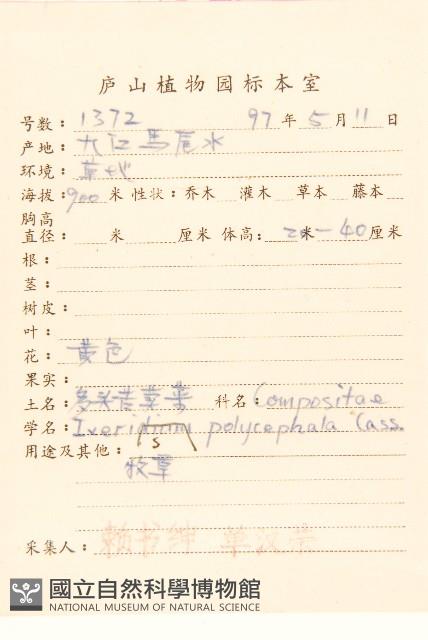 庐山植物园标本室
号数：1372 97年5月11日
产地：九江馬尾水
环境：草地
海拔：900米 性状：乔木 灌木 草本 藤本
胸高
直径： 米 厘米 体高：20米—40厘米
根：
茎：
树皮：
叶：
花：黄色
果实：
土名：多头苦荬菜 科名：Compositae
学名：Ixeridium polycephala Cass.
s
用途及其他：
牧草
采集人：赖书绅 单汉荣
國立自然科學博物館
NATIONAL MUSEUM OF NATURAL SCIENCE